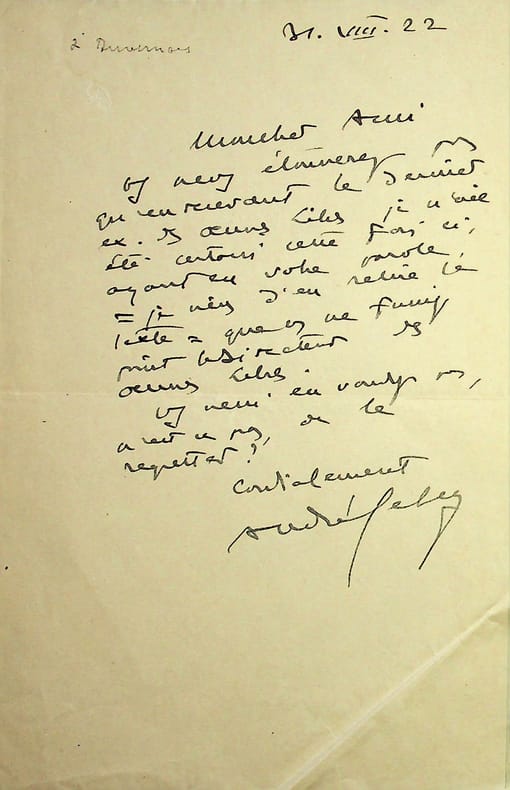 à Duvernois
31. VIII. 22
Mon cher Ami
Vs ne vs étonnerez pas
qu'en recevant le dernier
ex. des œuvres Libres je n'aie
été certain cette fois ci,
ayant eu votre parole,
= je viens d'en relire le
texte = que vs ne fussiez
point le Directeur des
œuvres Libres.
Vs ne m'en voudrez pas,
n'est ce pas, de le
regretter?
Cordialement
André Lebey